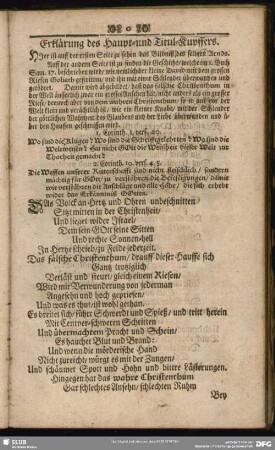 Erklärung des Haupt- und Titul-Kupffers.
HIer ist auf der ersten Seite zu sehen das Bildniß des seligen Arnds.
Auf der andern Seite ist zu finden die Geschichte/welche im 1. Buch
Sam. 17. beschrieben wird/ wie nemlich der kleine David mit dem grossen
Riesen Goliath gestritten/ und ihn mit einer Schleuder überwunden und
getödtet. Damit wird abgebildet/ daß das falsche Christenthum in
der Welt äusserlich zwar ein groß Ansehen hat/ nicht anders als ein grosser
Riese/ dennoch aber vom wahren Christenthum/ so ja auch nur vor der
Welt klein und verächtlich ist/ wie ein kleiner Knabe/ mit der Schleuder
der göttlichen Wahrheit des Glaubens und der Liebe überwunden und ü-
ber den Hauffen geschmissen wird.
1. Corinth. 1. vers. 20.
Wo sind die Klugen? Wo sind die Schrifftgelehrten? Wo sind die
Weltweisen? Hat nicht GOtt die Weisheit dieser Welt zur
Thorheit gemacht?
2. Corinth. 10. vers. 4. 5.
Die Waffen unserer Ritterschafft sind nicht fleischlich / sondern
mächtig für GOtt/ zu verstöhren die Befestigungen/ damit
wir verstöhren die Anschläge und alle Höhe/ die sich erhebt
wider das Erkäntniß GOttes.
DAs Volck an Hertz und Ohren unbeschnitten
Sitzt mitten in der Christenheit/
Und lieget wider Israel/
Dem sein GOtt seine Sitten
Und rechte Sonnen-hell
In Hertze schrieb/ zu Felde jederzeit.
Das falsche Christenthum / drauff dieser Hauffe sich
Gantz trotziglich
Verläst und steurt/ gleich einem Riesen/
Wird mit Verwunderung von jederman
Angesehn und hoch gepriesen/
Und was es thut/ ist wohl gethan.
Es breitet sich/ führt Schwerdt und Spieß/ und tritt herein
Mit Centner-schweren Schritten
Und übermachtem Pracht und Schein/
Es hauchet Blut und Brand:
Und wenn die mörderische Hand
Nicht zureicht/ würgt es mit der Zungen/
Und schäumet Spott und Hohn und bittre Lästerungen.
Hingegen hat das wahre Christenthum
Gar schlechtes Ansehn/ schlechten Ruhm
Bey
SLUB
DFG